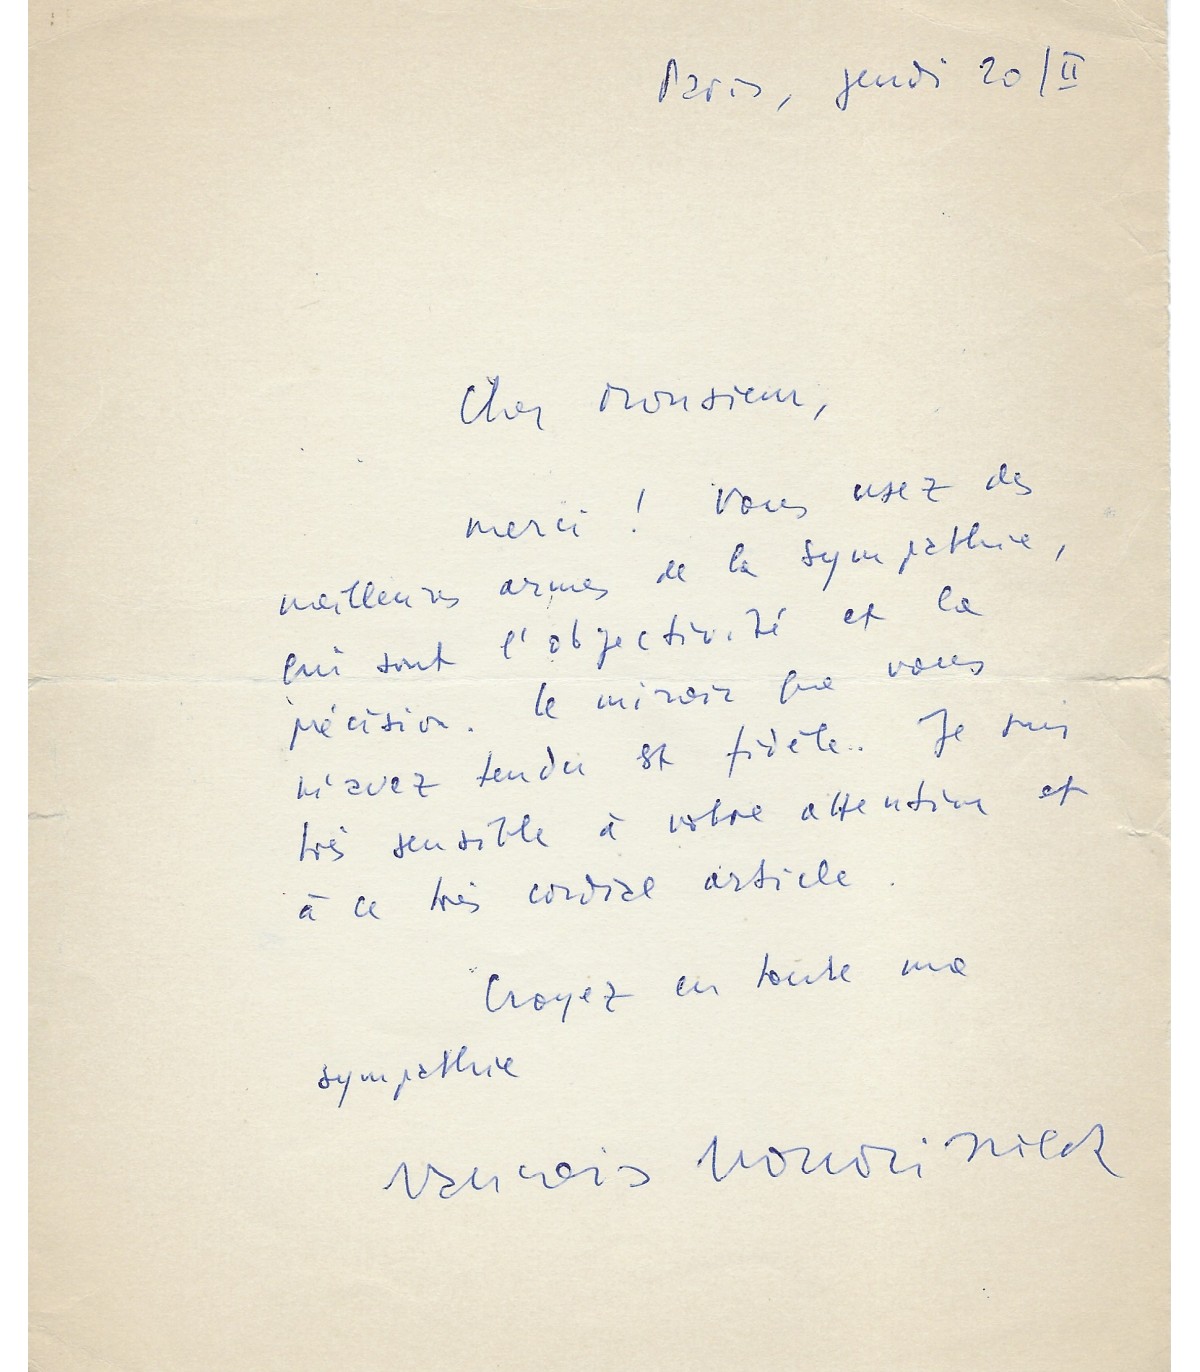 Paris, jeudi 20/II
Cher Monsieur,
merci ! Vous usez des
meilleures armes de la sympathie,
qui sont l'objectivité et la
précision. Le miroir que vous
m'avez tendu est fidèle.. Je suis
très sensible à votre attention et
à ce très cordial article.
Croyez en toute ma
sympathie
François